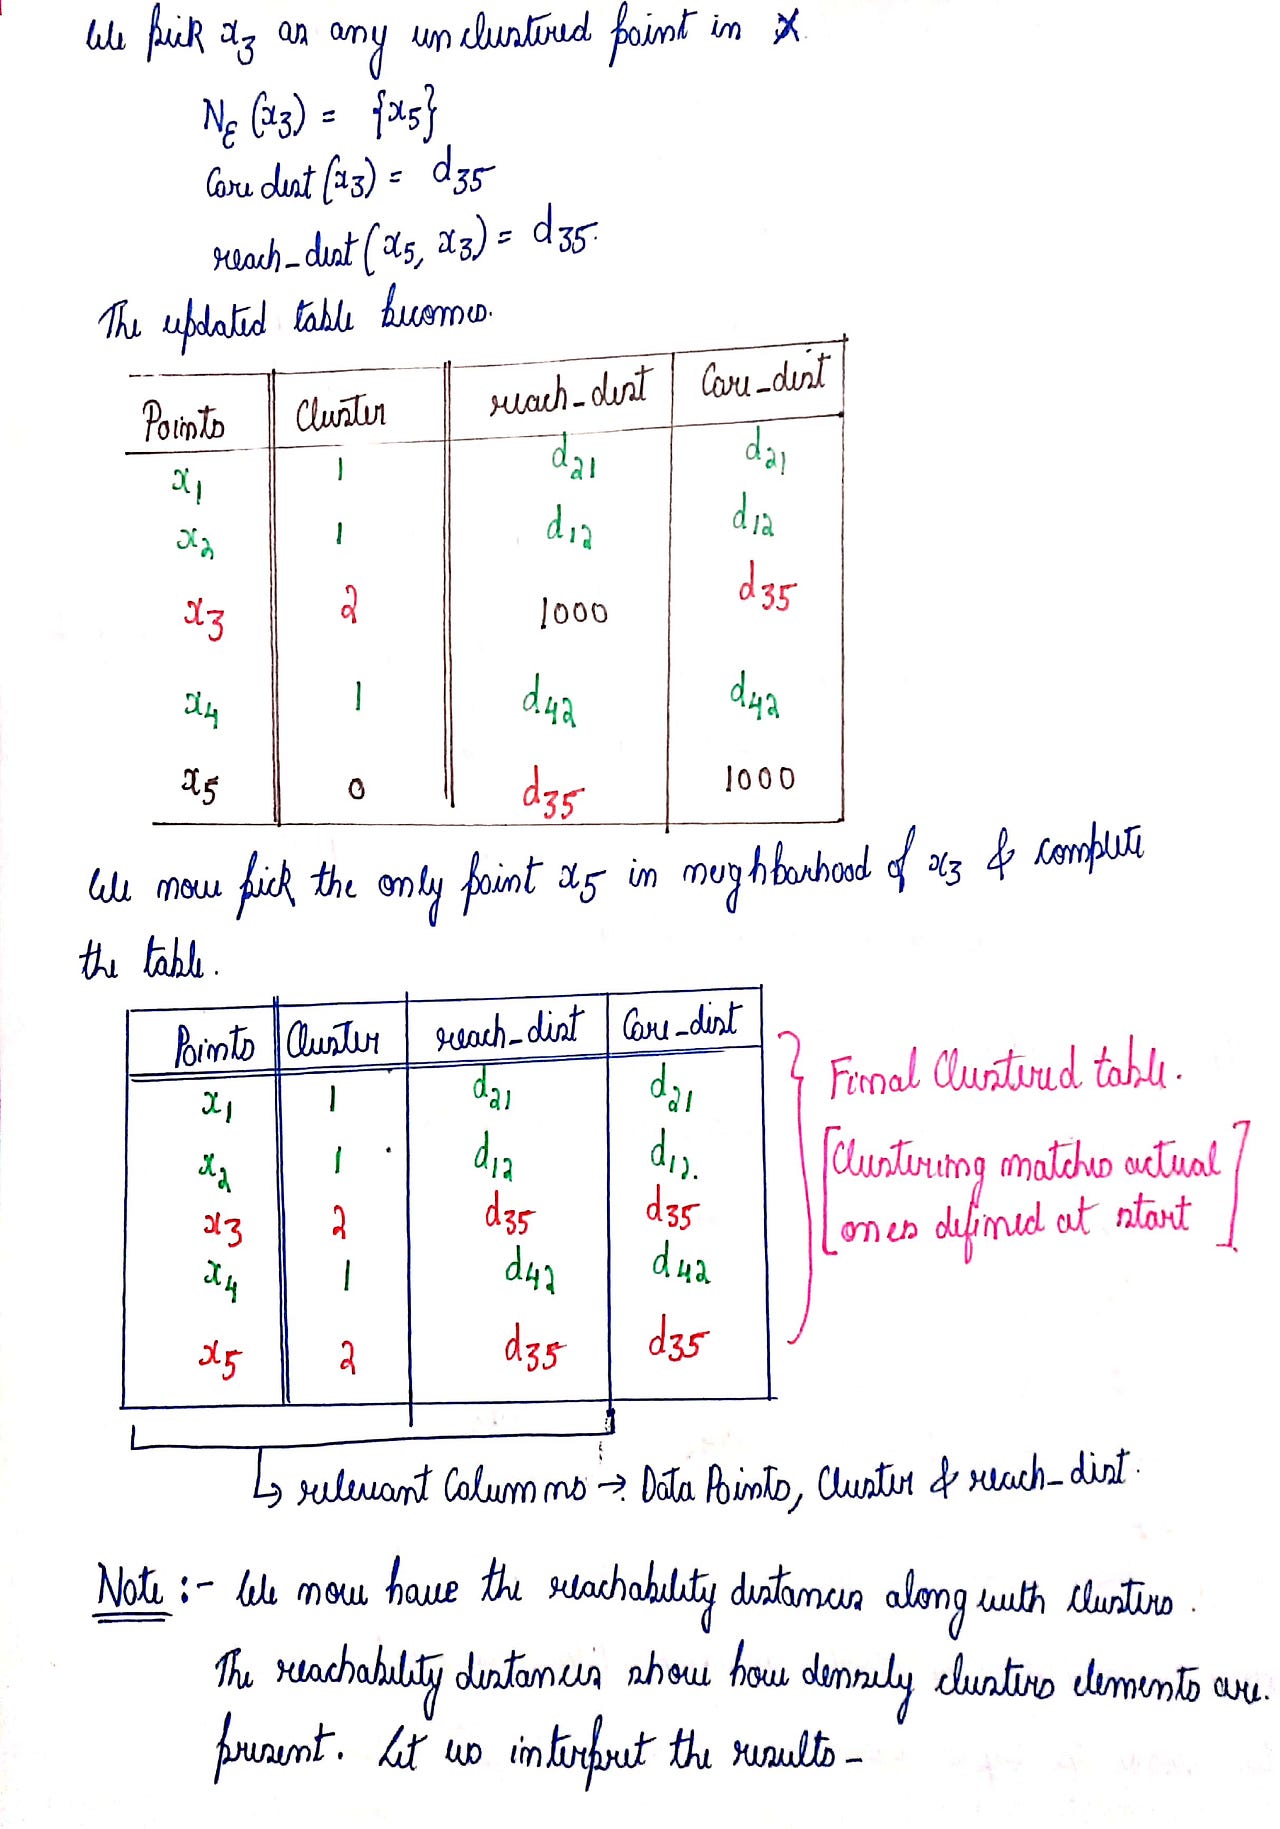 We pick x₃ as any unclustered point in X
Nε (x₃) = {x₅}
Core dist (x₃) = d₃₅
reach_dist (x₅, x₃) = d₃₅.
The updated table becomes.
Points Cluster reach_dist Core_dist
x₁ 1 d₂₁ d₂₁
x₂ 1 d₁₂ d₁₂
x₃ 2 1000 d₃₅
x₄ 1 d₄₂ d₄₂
x₅ 0 d₃₅ 1000
We now pick the only point x₅ in neighborhood of x₃ & complete
the table.
Points Cluster reach_dist Core_dist
x₁ 1 d₂₁ d₂₁
x₂ 1 d₁₂ d₁₂.
x₃ 2 d₃₅ d₃₅
x₄ 1 d₄₂ d₄₂
x₅ 2 d₃₅ d₃₅
Final Clustered table.
[Clustering matches actual
ones defined at start]
↳ relevant Columns → Data Points, Cluster & reach_dist.
Note :- We now have the reachability distances along with clusters.
The reachability distances show how densely clusters elements are.
present. Let us interpret the results -